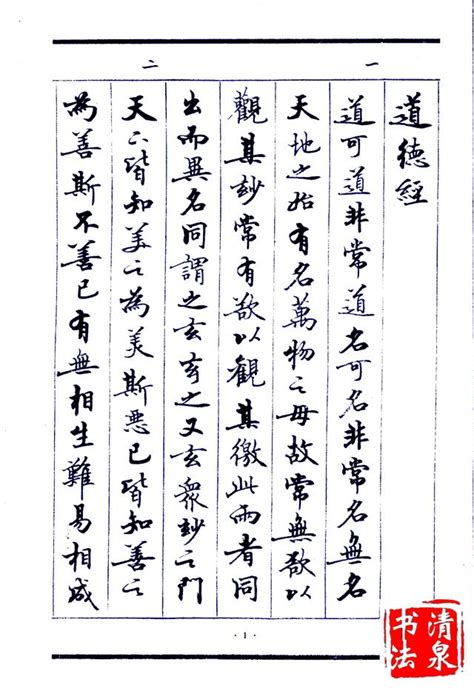 一
二
道德經
道可道非常道名可名非常名無名
天地之始有名萬物之母故常無欲以
觀其妙常有欲以觀其徼此兩者同
出而異名同謂之玄玄之又玄衆妙之門
天下皆知美之為美斯惡已皆知善之
為善斯不善已有無相生難易相成
·1·
清泉
书法